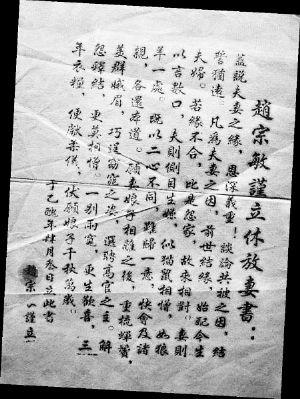 趙宗敏謹立休放妻書：
蓋說夫妻之緣，恩深義重！談論共被之因，結
誓幽遠。凡為夫妻之因，前世結緣，始配今生
夫婦。若緣不合，比是怨家，故來相對。妻則
以言數口，夫則側目生嫌，似貓鼠相憎，如狼
羊一處。既以二心不同，難歸一意，快會及諸
親，各還本道。願妻娘子相離之後，重梳蟬鬢，
美裙娥眉，巧逞窈窕之姿，選聘高官之主。解
怨釋結，更莫相憎。一別兩寬，更生歡喜。三
年衣糧，便獻柔儀。伏願娘子千秋萬歲！
于乙酉年肆月叁日立此書
趙宗敏謹立